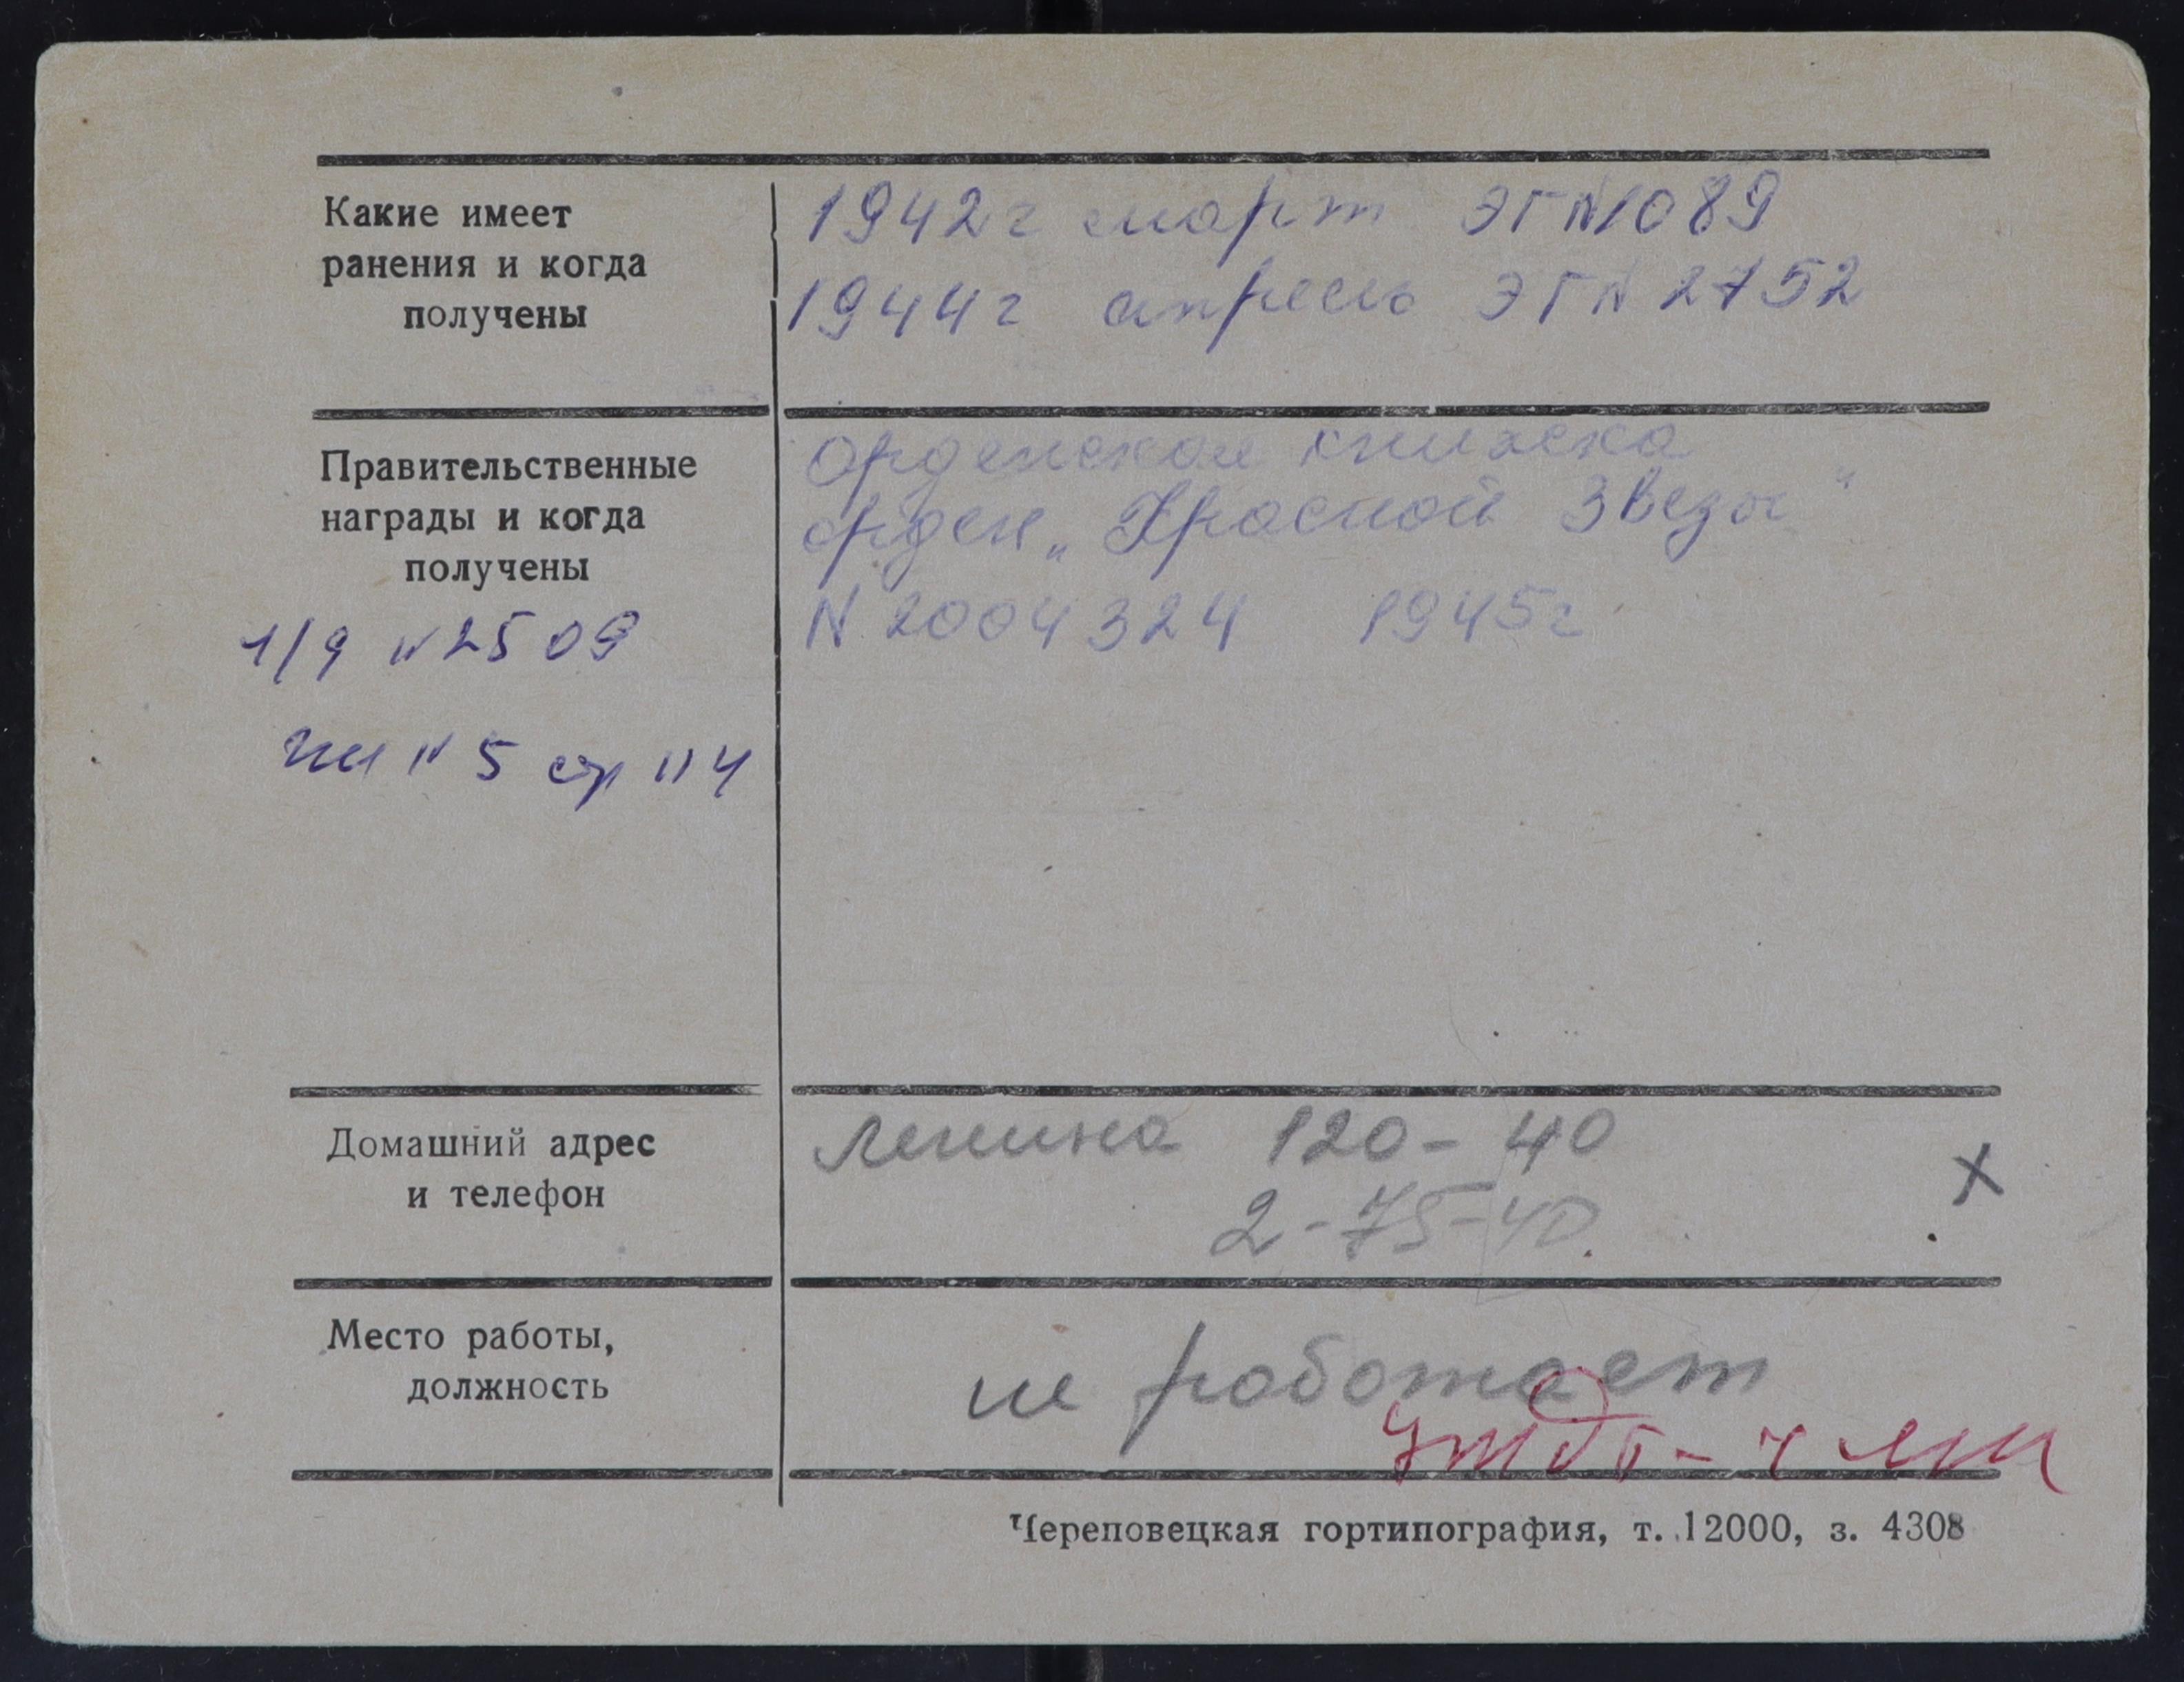 Какие имеет
ранения и когда
получены
1942г март ЭГ №1089
1944г апрель ЭГ N 2752
Правительственные
награды и когда
получены
Орденская книжка
орден „Красной Звезды"
N 2004324 1945г
1/9 N 2509
N 5 стр 114
Домашний адрес
и телефон
Ленина 120-40
2-75-40.
х
Место работы,
должность
не работает
Череповецкая гортипография, т. 12000, з. 4308